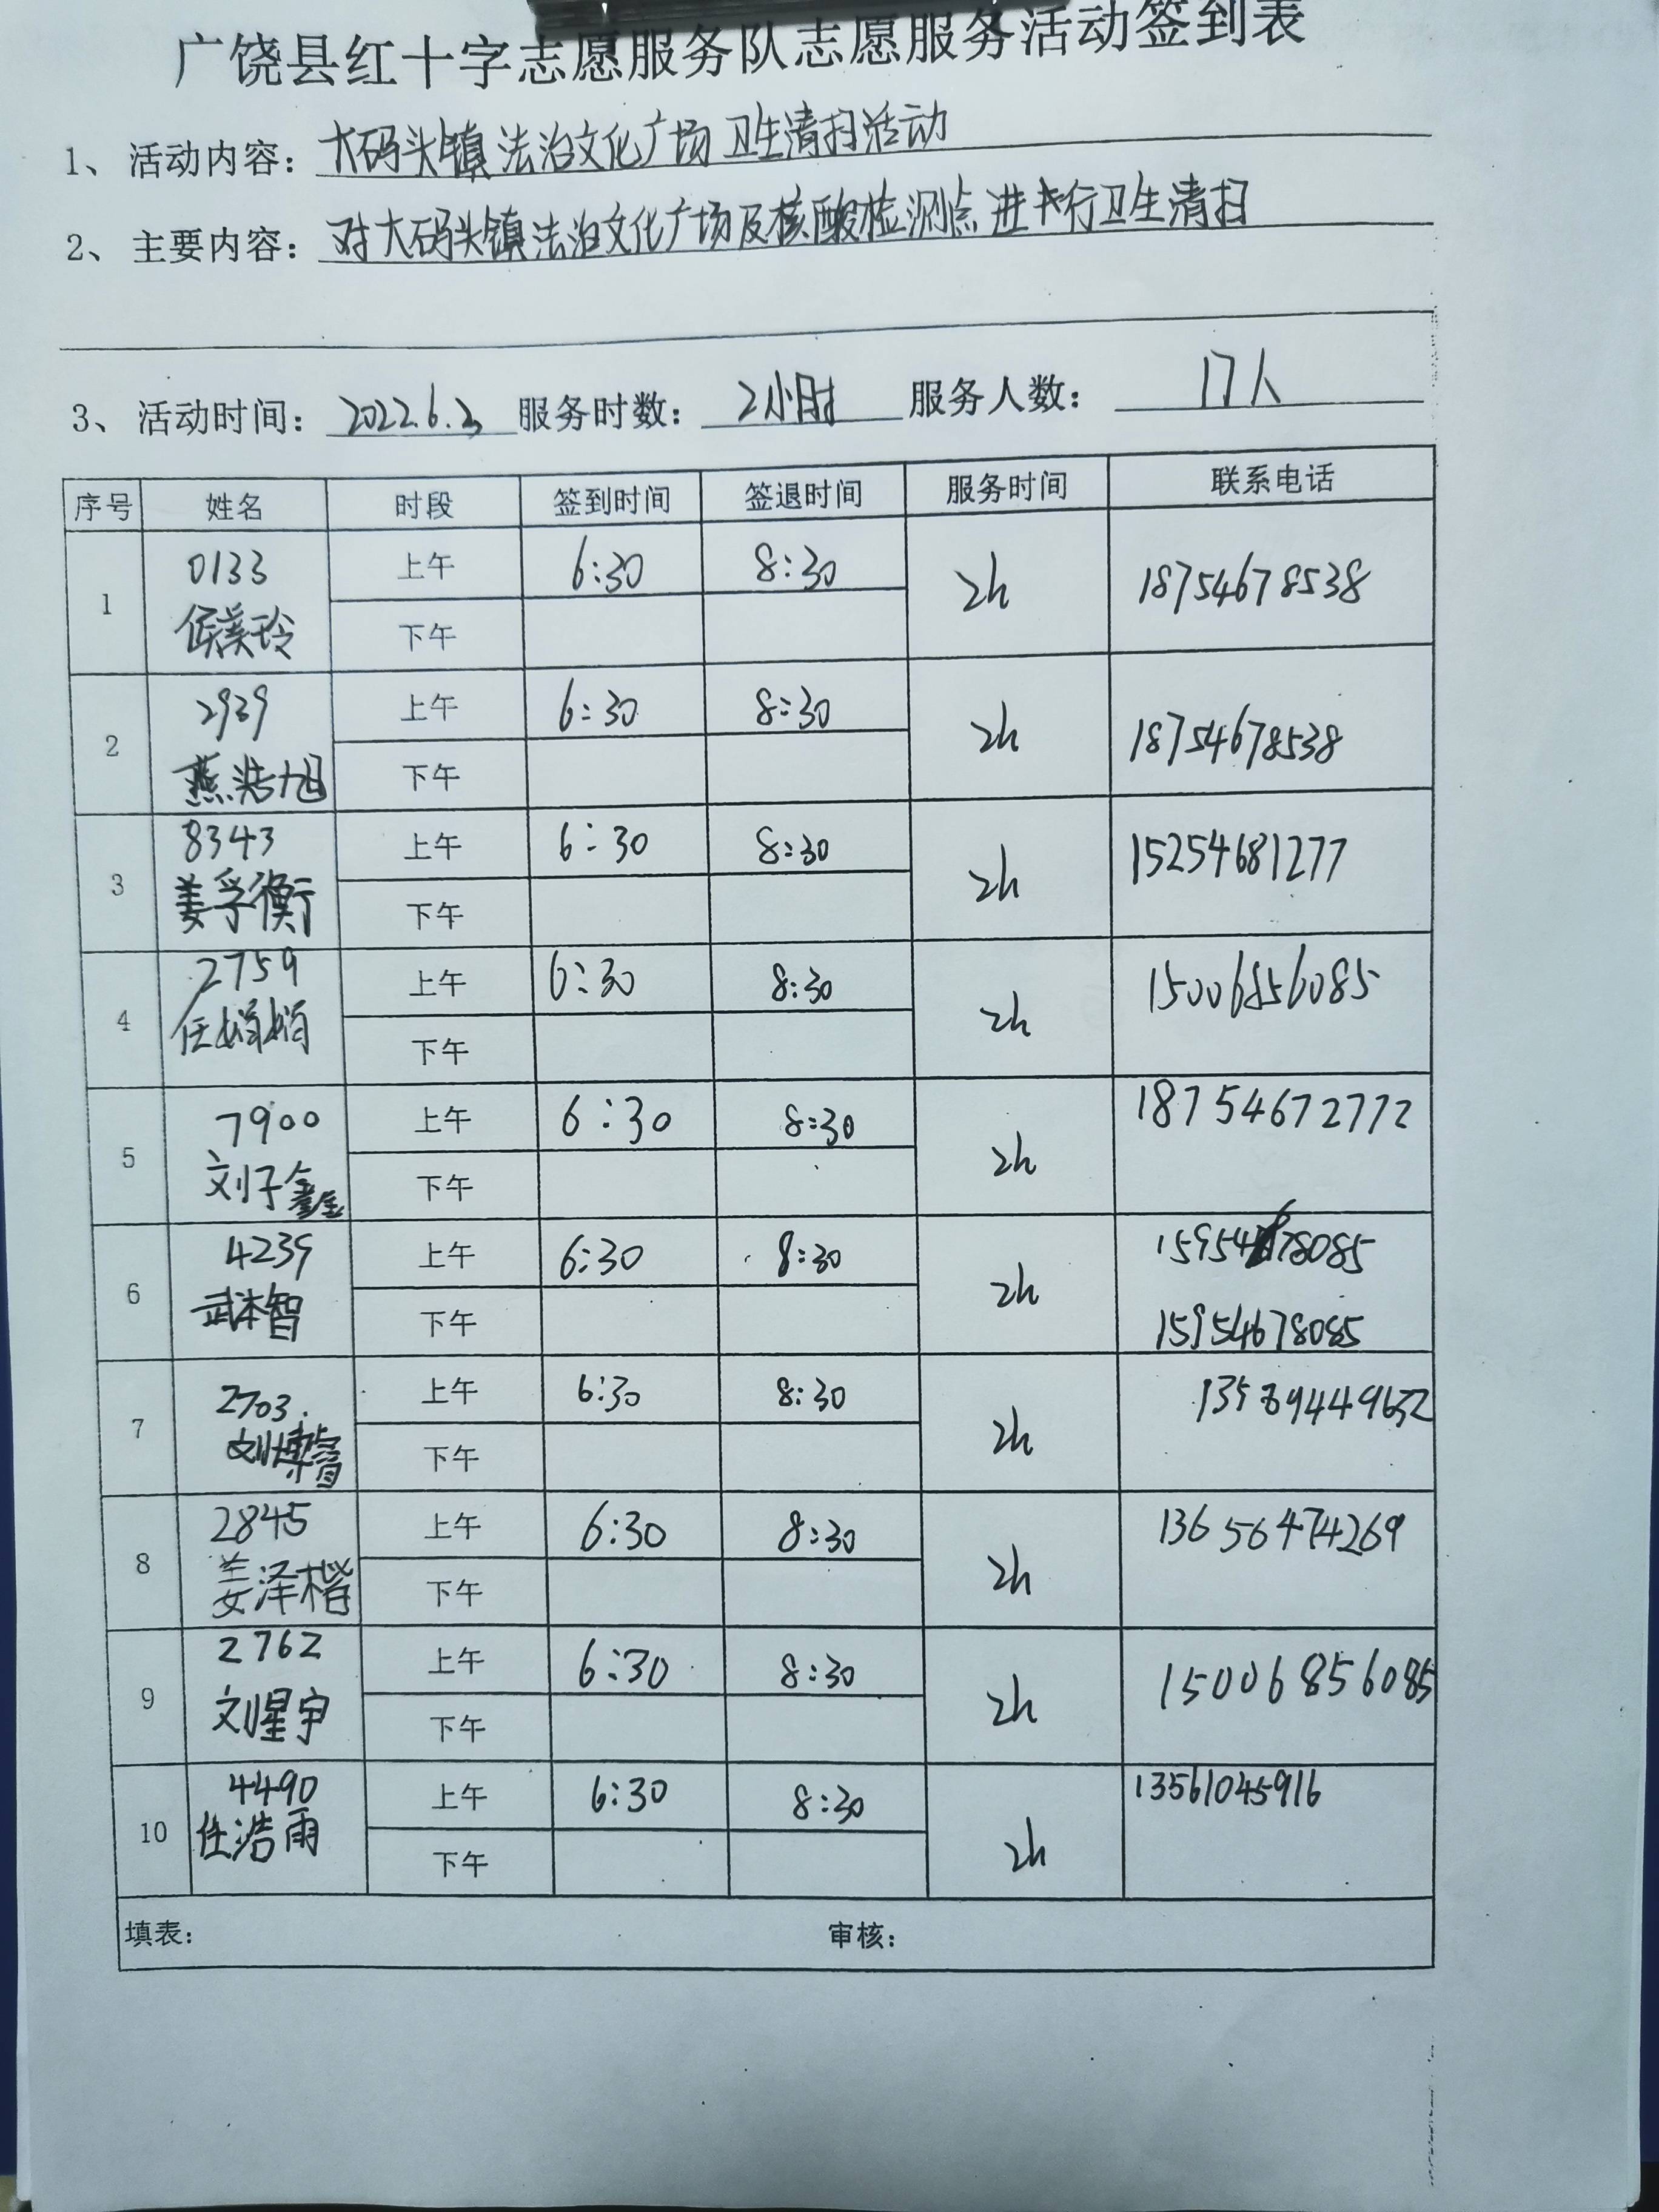 广饶县红十字志愿服务队志愿服务活动签到表
1、活动内容：大码头镇法治文化广场卫生清扫活动
2、主要内容：对大码头镇法治文化广场及核酸检测点进行卫生清扫
3、活动时间：2022.6.3 服务时数：2小时 服务人数：17人
序号 姓名 时段 签到时间 签退时间 服务时间 联系电话
1 0133 侯美玲 上午 6:30 8:30 2h 18754678538
下午
2 2939 燕浩旭 上午 6:30 8:30 2h 18754678538
下午
3 8343 姜孚衡 上午 6:30 8:30 2h 15254681277
下午
4 2759 任娟娟 上午 6:30 8:30 2h 15006856085
下午
5 7900 刘子鑫 上午 6:30 8:30 2h 18754672772
下午
6 4239 武本智 上午 6:30 8:30 2h 15954678085
下午 15954678085
7 2703. 刘博睿 上午 6:30 8:30 2h
下午
8 2845 姜泽楷 上午 6:30 8:30 2h 13656474269
下午
9 2762 刘星宇 上午 6:30 8:30 2h 15006856085
下午
10 4490 任浩雨 上午 6:30 8:30 2h 13561045916
下午
填表： 审核：